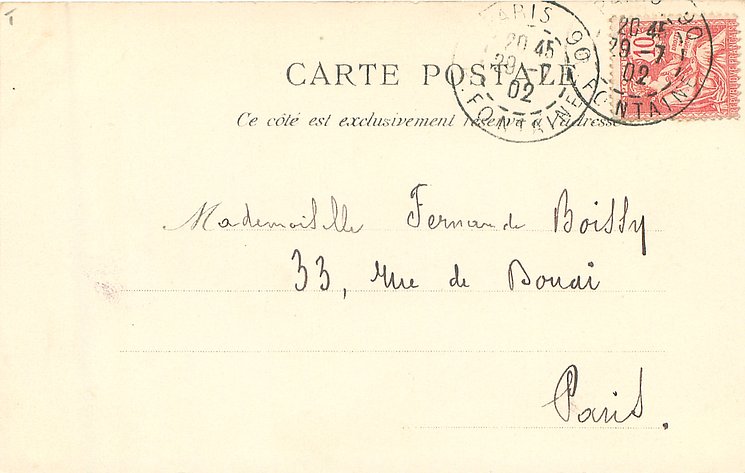 PARIS 90
20 45
29 - 7
02
R. FONTAINE
PARIS 90
20 45
29 - 7
02
FONTAINE
10
CARTE POSTALE
Ce côté est exclusivement réservé à l'adresse
Mademoiselle Fernande Boissy
33, Rue de Douai
Paris.